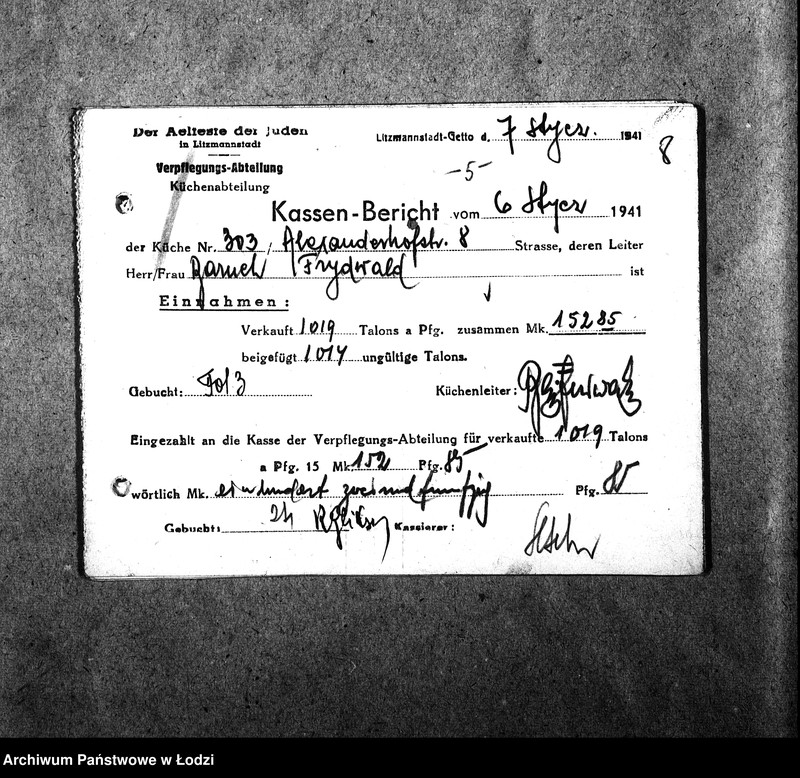 Der Aelteste der Juden
in Litzmannstadt
Verpflegungs-Abteilung
Küchenabteilung
Litzmannstadt-Getto d. 7 Stycz. 1941
8
-5-
Kassen-Bericht vom 6 Stycz 1941
der Küche Nr. 303, Alexanderhofstr. 8 Strasse, deren Leiter
Herr/Frau Baruch Frydwald ist
Einnahmen:
Verkauft 1019 Talons a Pfg. zusammen Mk. 152 85
beigefügt 1014 ungültige Talons.
Gebucht: Fol 3 Küchenleiter:
Eingezahlt an die Kasse der Verpflegungs-Abteilung für verkaufte 1019 Talons
a Pfg. 15 Mk 152 Pfg. 85
wörtlich Mk. einhundert zweiundfunfzig Pfg. 85
Gebucht: Kassierer:
Archiwum Państwowe w Łodzi